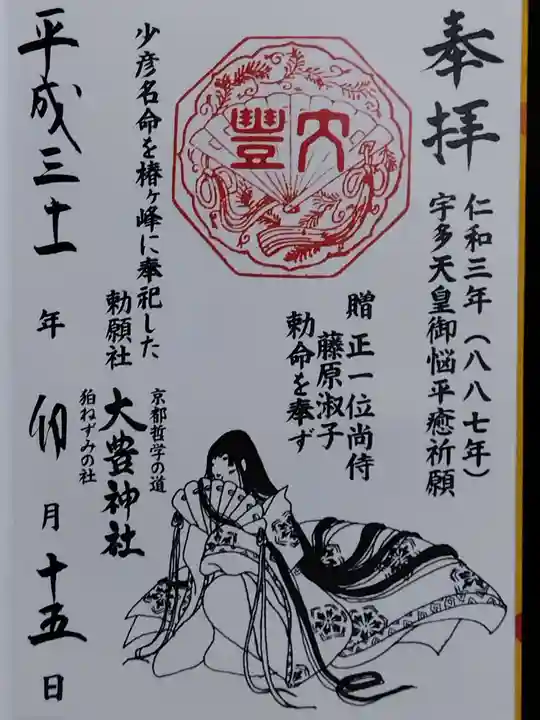 奉拝
仁和三年（八八七年）
宇多天皇御悩平癒祈願
贈 正一位尚侍
藤原淑子
勅命を奉ず
大豐
少彦名命を椿ヶ峰に奉祀した
勅願社
京都哲学の道
大豊神社
狛ねずみの社
平成三十一年 卯月十五日